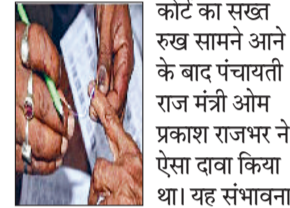 कोर्ट का सख्त
रुख सामने आने
के बाद पंचायती
राज मंत्री ओम
प्रकाश राजभर ने
ऐसा दावा किया
था। यह संभावना